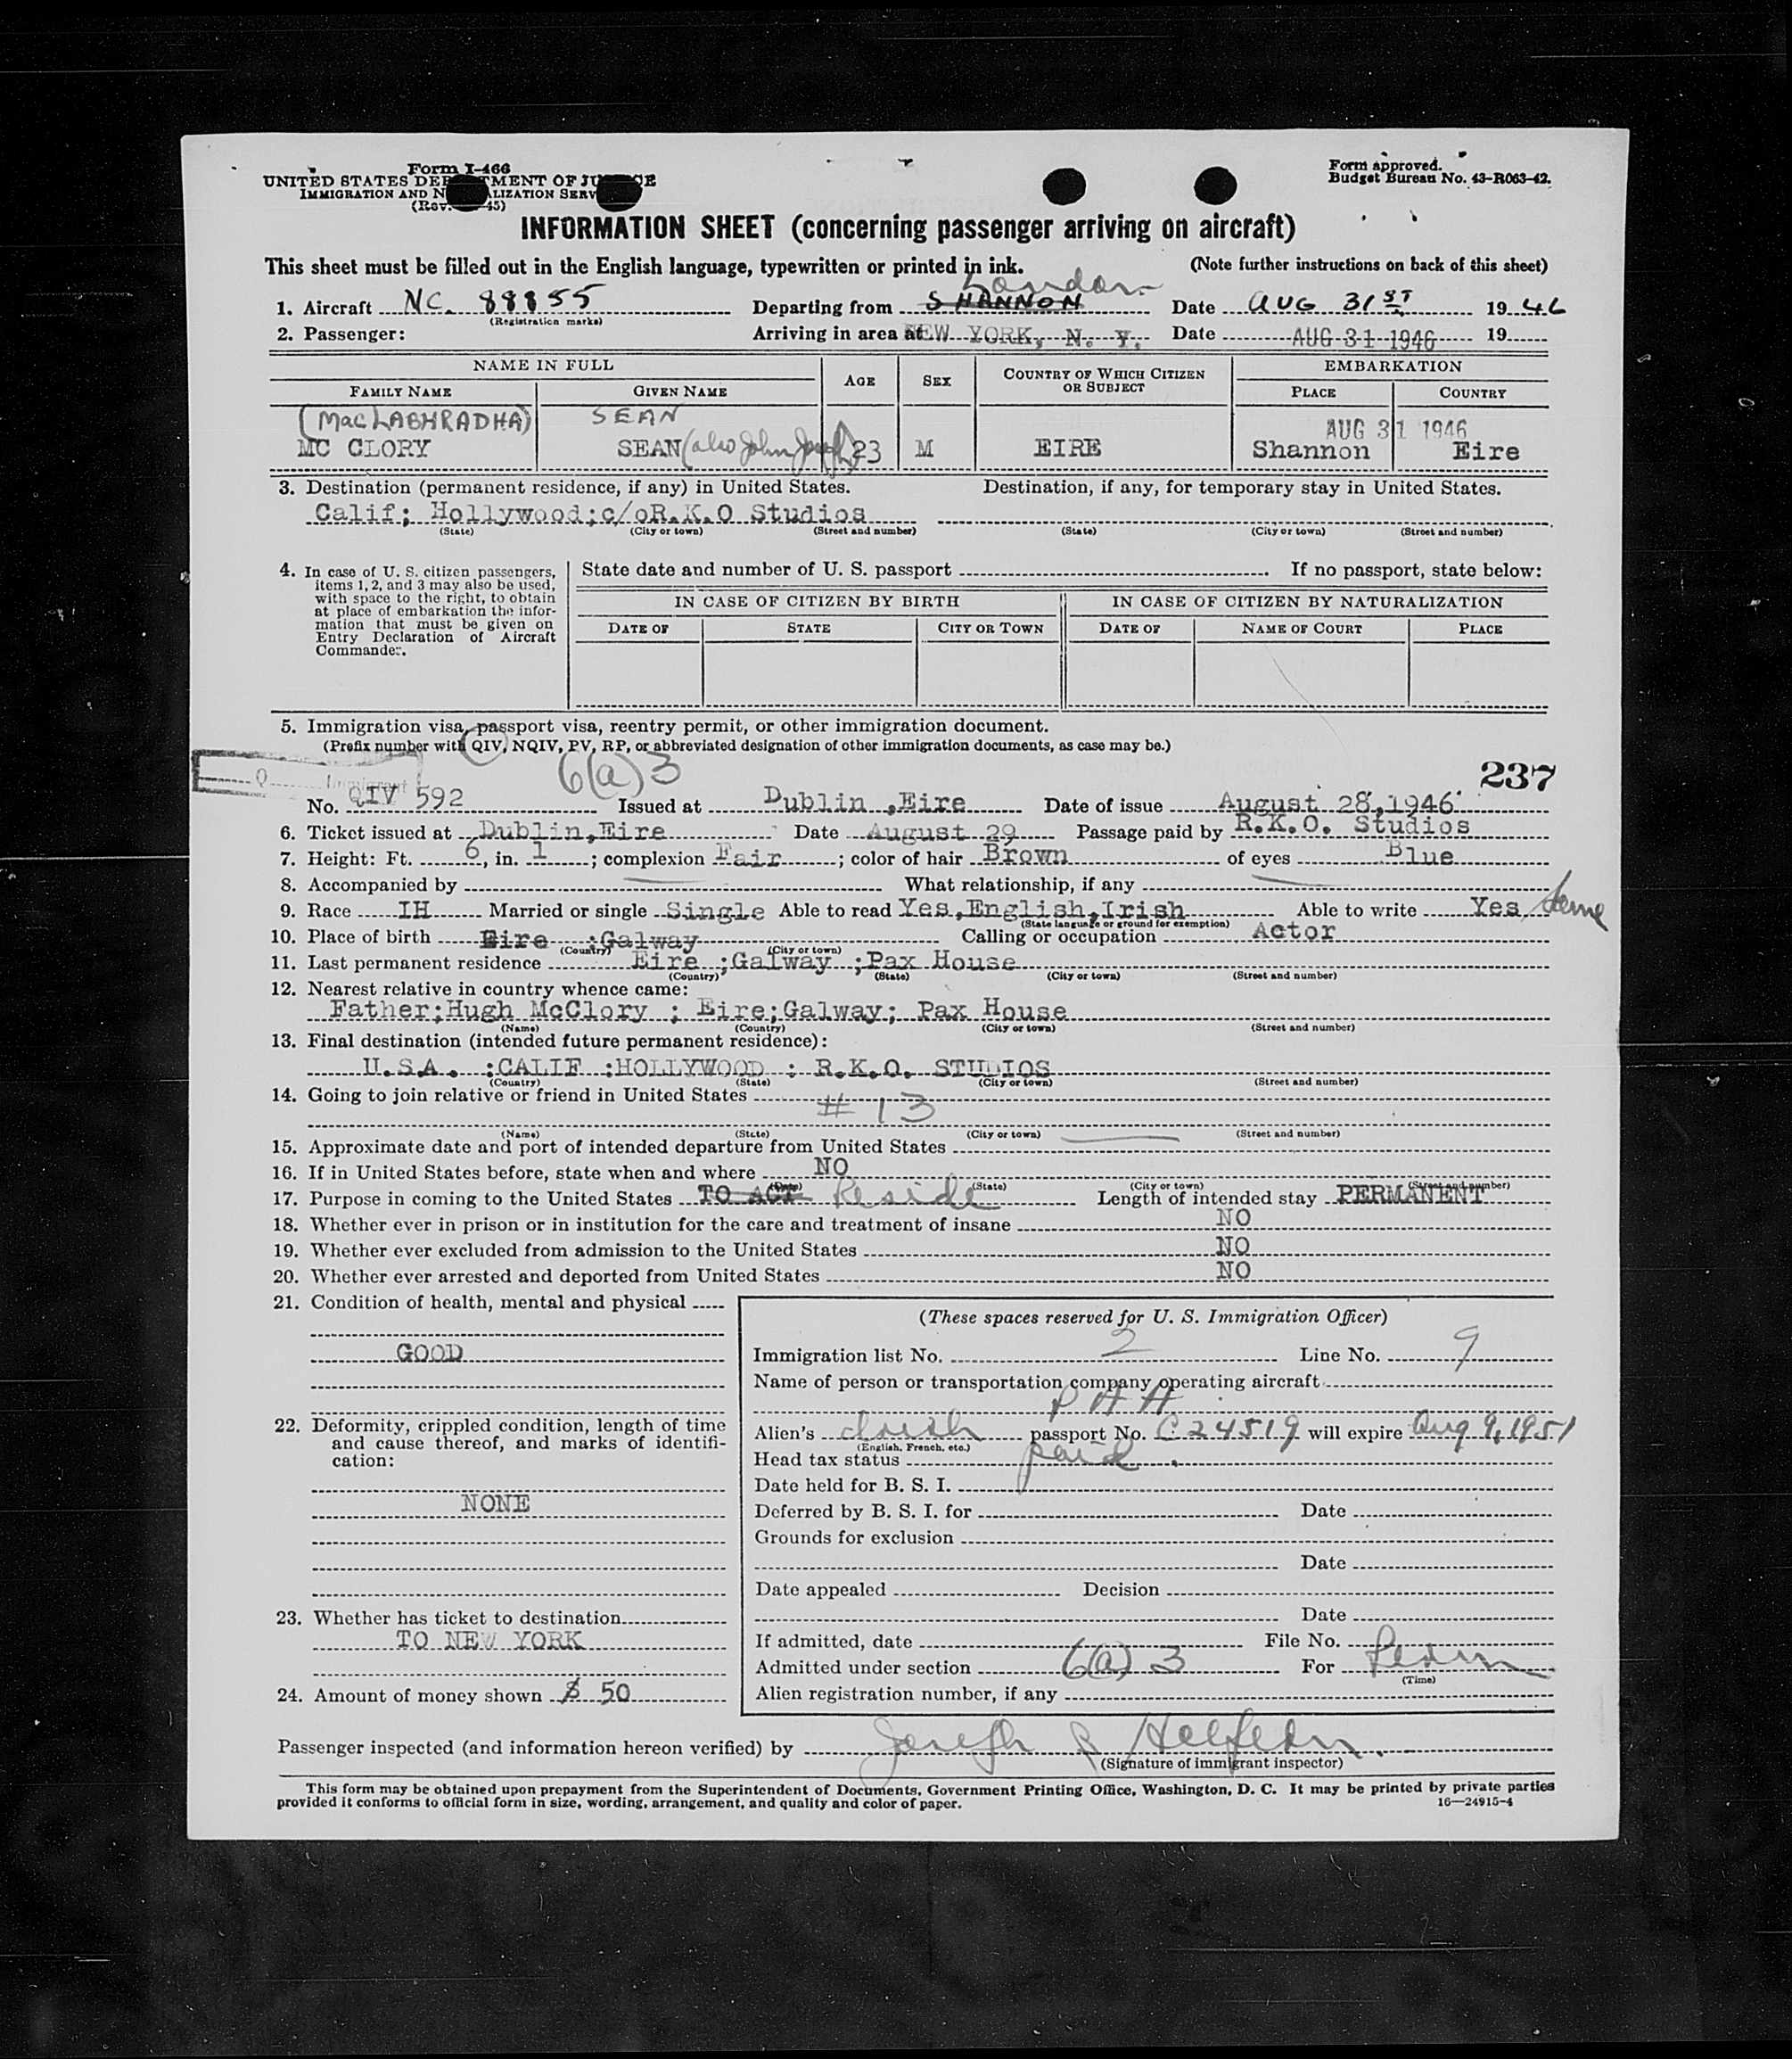 Form I-466
UNITED STATES DEPARTMENT OF JUSTICE
IMMIGRATION AND NATURALIZATION SERVICE
(Rev. 45)
Form approved.
Budget Bureau No. 43-R063-42.
INFORMATION SHEET (concerning passenger arriving on aircraft)
This sheet must be filled out in the English language, typewritten or printed in ink. (Note further instructions on back of this sheet)
London
1. Aircraft NC. 88855 Departing from SHANNON Date AUG 31ST 1946
(Registration marks)
2. Passenger: Arriving in area at NEW YORK, N. Y. Date AUG 31 1946 19
NAME IN FULL AGE SEX COUNTRY OF WHICH CITIZEN OR SUBJECT EMBARKATION
FAMILY NAME GIVEN NAME PLACE COUNTRY
(MacLABHRADHA) SEAN AUG 31 1946
MC CLORY SEAN (also John Joseph) 23 M EIRE Shannon Eire
3. Destination (permanent residence, if any) in United States. Destination, if any, for temporary stay in United States.
Calif; Hollywood;c/oR.K.O Studios
(State) (City or town) (Street and number) (State) (City or town) (Street and number)
4. In case of U. S. citizen passengers, items 1, 2, and 3 may also be used, with space to the right, to obtain at place of embarkation the information that must be given on Entry Declaration of Aircraft Commander.
State date and number of U. S. passport . If no passport, state below:
IN CASE OF CITIZEN BY BIRTH IN CASE OF CITIZEN BY NATURALIZATION
DATE OF STATE CITY OR TOWN DATE OF NAME OF COURT PLACE
5. Immigration visa, passport visa, reentry permit, or other immigration document.
(Prefix number with QIV, NQIV, PV, RP, or abbreviated designation of other immigration documents, as case may be.)
Q Immigrant 6(a)3 237
No. QIV 592 Issued at Dublin ,Eire Date of issue August 28,1946
6. Ticket issued at Dublin,Eire Date August 29 Passage paid by R.K.O. Studios
7. Height: Ft. 6, in. 1; complexion Fair; color of hair Brown of eyes Blue
8. Accompanied by What relationship, if any
9. Race IH Married or single Single Able to read Yes,English,Irish Able to write Yes, same
(State language or ground for exemption)
10. Place of birth Eire ;Galway Calling or occupation Actor
(Country) (City or town)
11. Last permanent residence Eire ;Galway ;Pax House
(Country) (State) (City or town) (Street and number)
12. Nearest relative in country whence came:
Father;Hugh McClory ; Eire;Galway; Pax House
(Name) (Country) (City or town) (Street and number)
13. Final destination (intended future permanent residence):
U.S.A. ;CALIF ;HOLLYWOOD ; R.K.O. STUDIOS
(Country) (State) (City or town) (Street and number)
14. Going to join relative or friend in United States
# 13
(Name) (State) (City or town) (Street and number)
15. Approximate date and port of intended departure from United States
16. If in United States before, state when and where NO
(Date) (State) (City or town) (Street and number)
17. Purpose in coming to the United States TO ACT Reside Length of intended stay PERMANENT
18. Whether ever in prison or in institution for the care and treatment of insane NO
19. Whether ever excluded from admission to the United States NO
20. Whether ever arrested and deported from United States NO
21. Condition of health, mental and physical
GOOD
22. Deformity, crippled condition, length of time
and cause thereof, and marks of identifi-
cation:
NONE
23. Whether has ticket to destination
TO NEW YORK
24. Amount of money shown $ 50
(These spaces reserved for U. S. Immigration Officer)
Immigration list No. 2 Line No. 9
Name of person or transportation company operating aircraft
P A A
Alien's Irish passport No. C24519 will expire Aug 9, 1951
(English, French, etc.)
Head tax status paid
Date held for B. S. I.
Deferred by B. S. I. for Date
Grounds for exclusion
Date
Date appealed Decision
Date
If admitted, date File No.
Admitted under section 6(a) 3 For Perm
(Time)
Alien registration number, if any
Passenger inspected (and information hereon verified) by Joseph
(Signature of immigrant inspector)
This form may be obtained upon prepayment from the Superintendent of Documents, Government Printing Office, Washington, D. C. It may be printed by private parties
provided it conforms to official form in size, wording, arrangement, and quality and color of paper. 16—24915-4